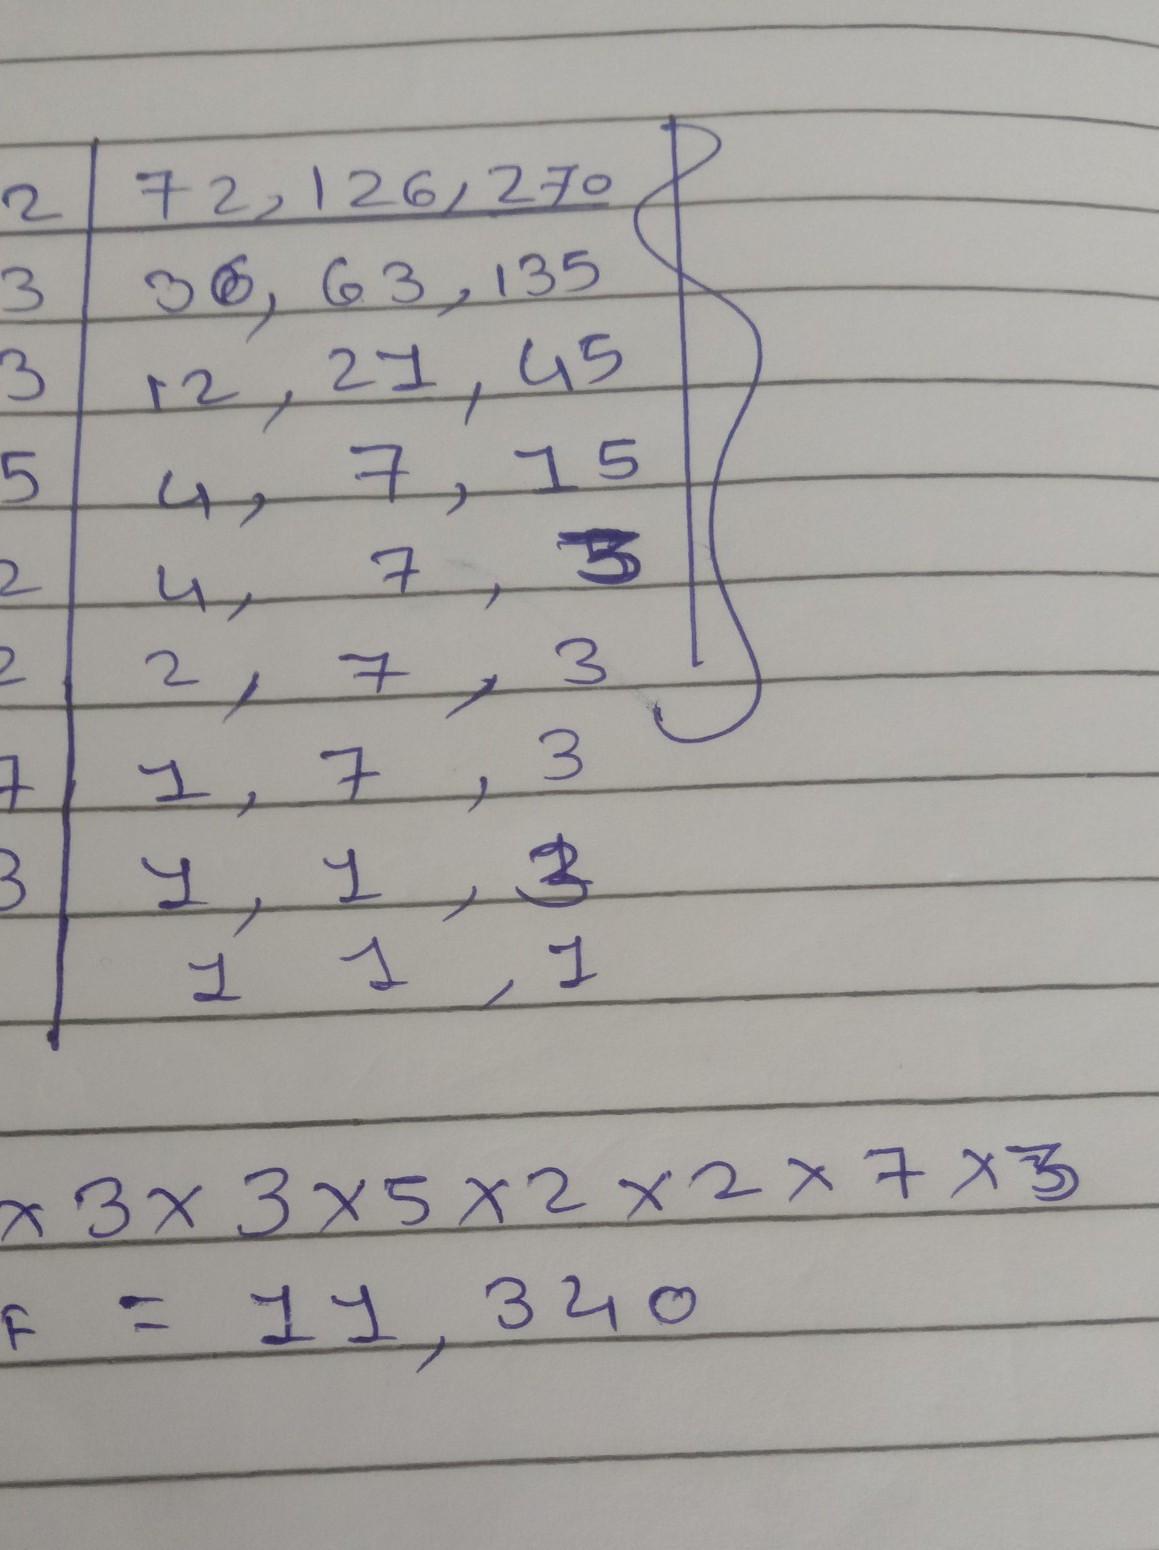 2 72, 126, 270
3 36, 63, 135
3 12, 21, 45
5 4, 7, 15
2 4, 7, 3
2 2, 7, 3
7 1, 7, 3
3 1, 1, 3
1 1, 1
× 3 × 3 × 5 × 2 × 2 × 7 × 3
F = 11,340